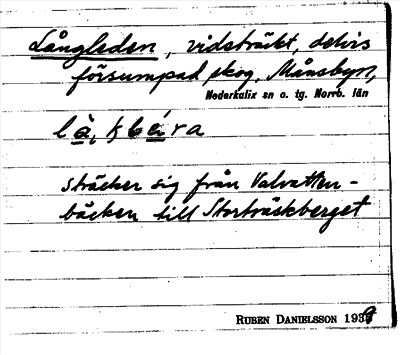 Långleden, vidsträckt, delvis
försumpad skog, Månsbyn,
Nederkalix sn o. tg. Norrb. län
sträcker sig från Valvatten-
bäcken till Storträskberget
RUBEN DANIELSSON 1939